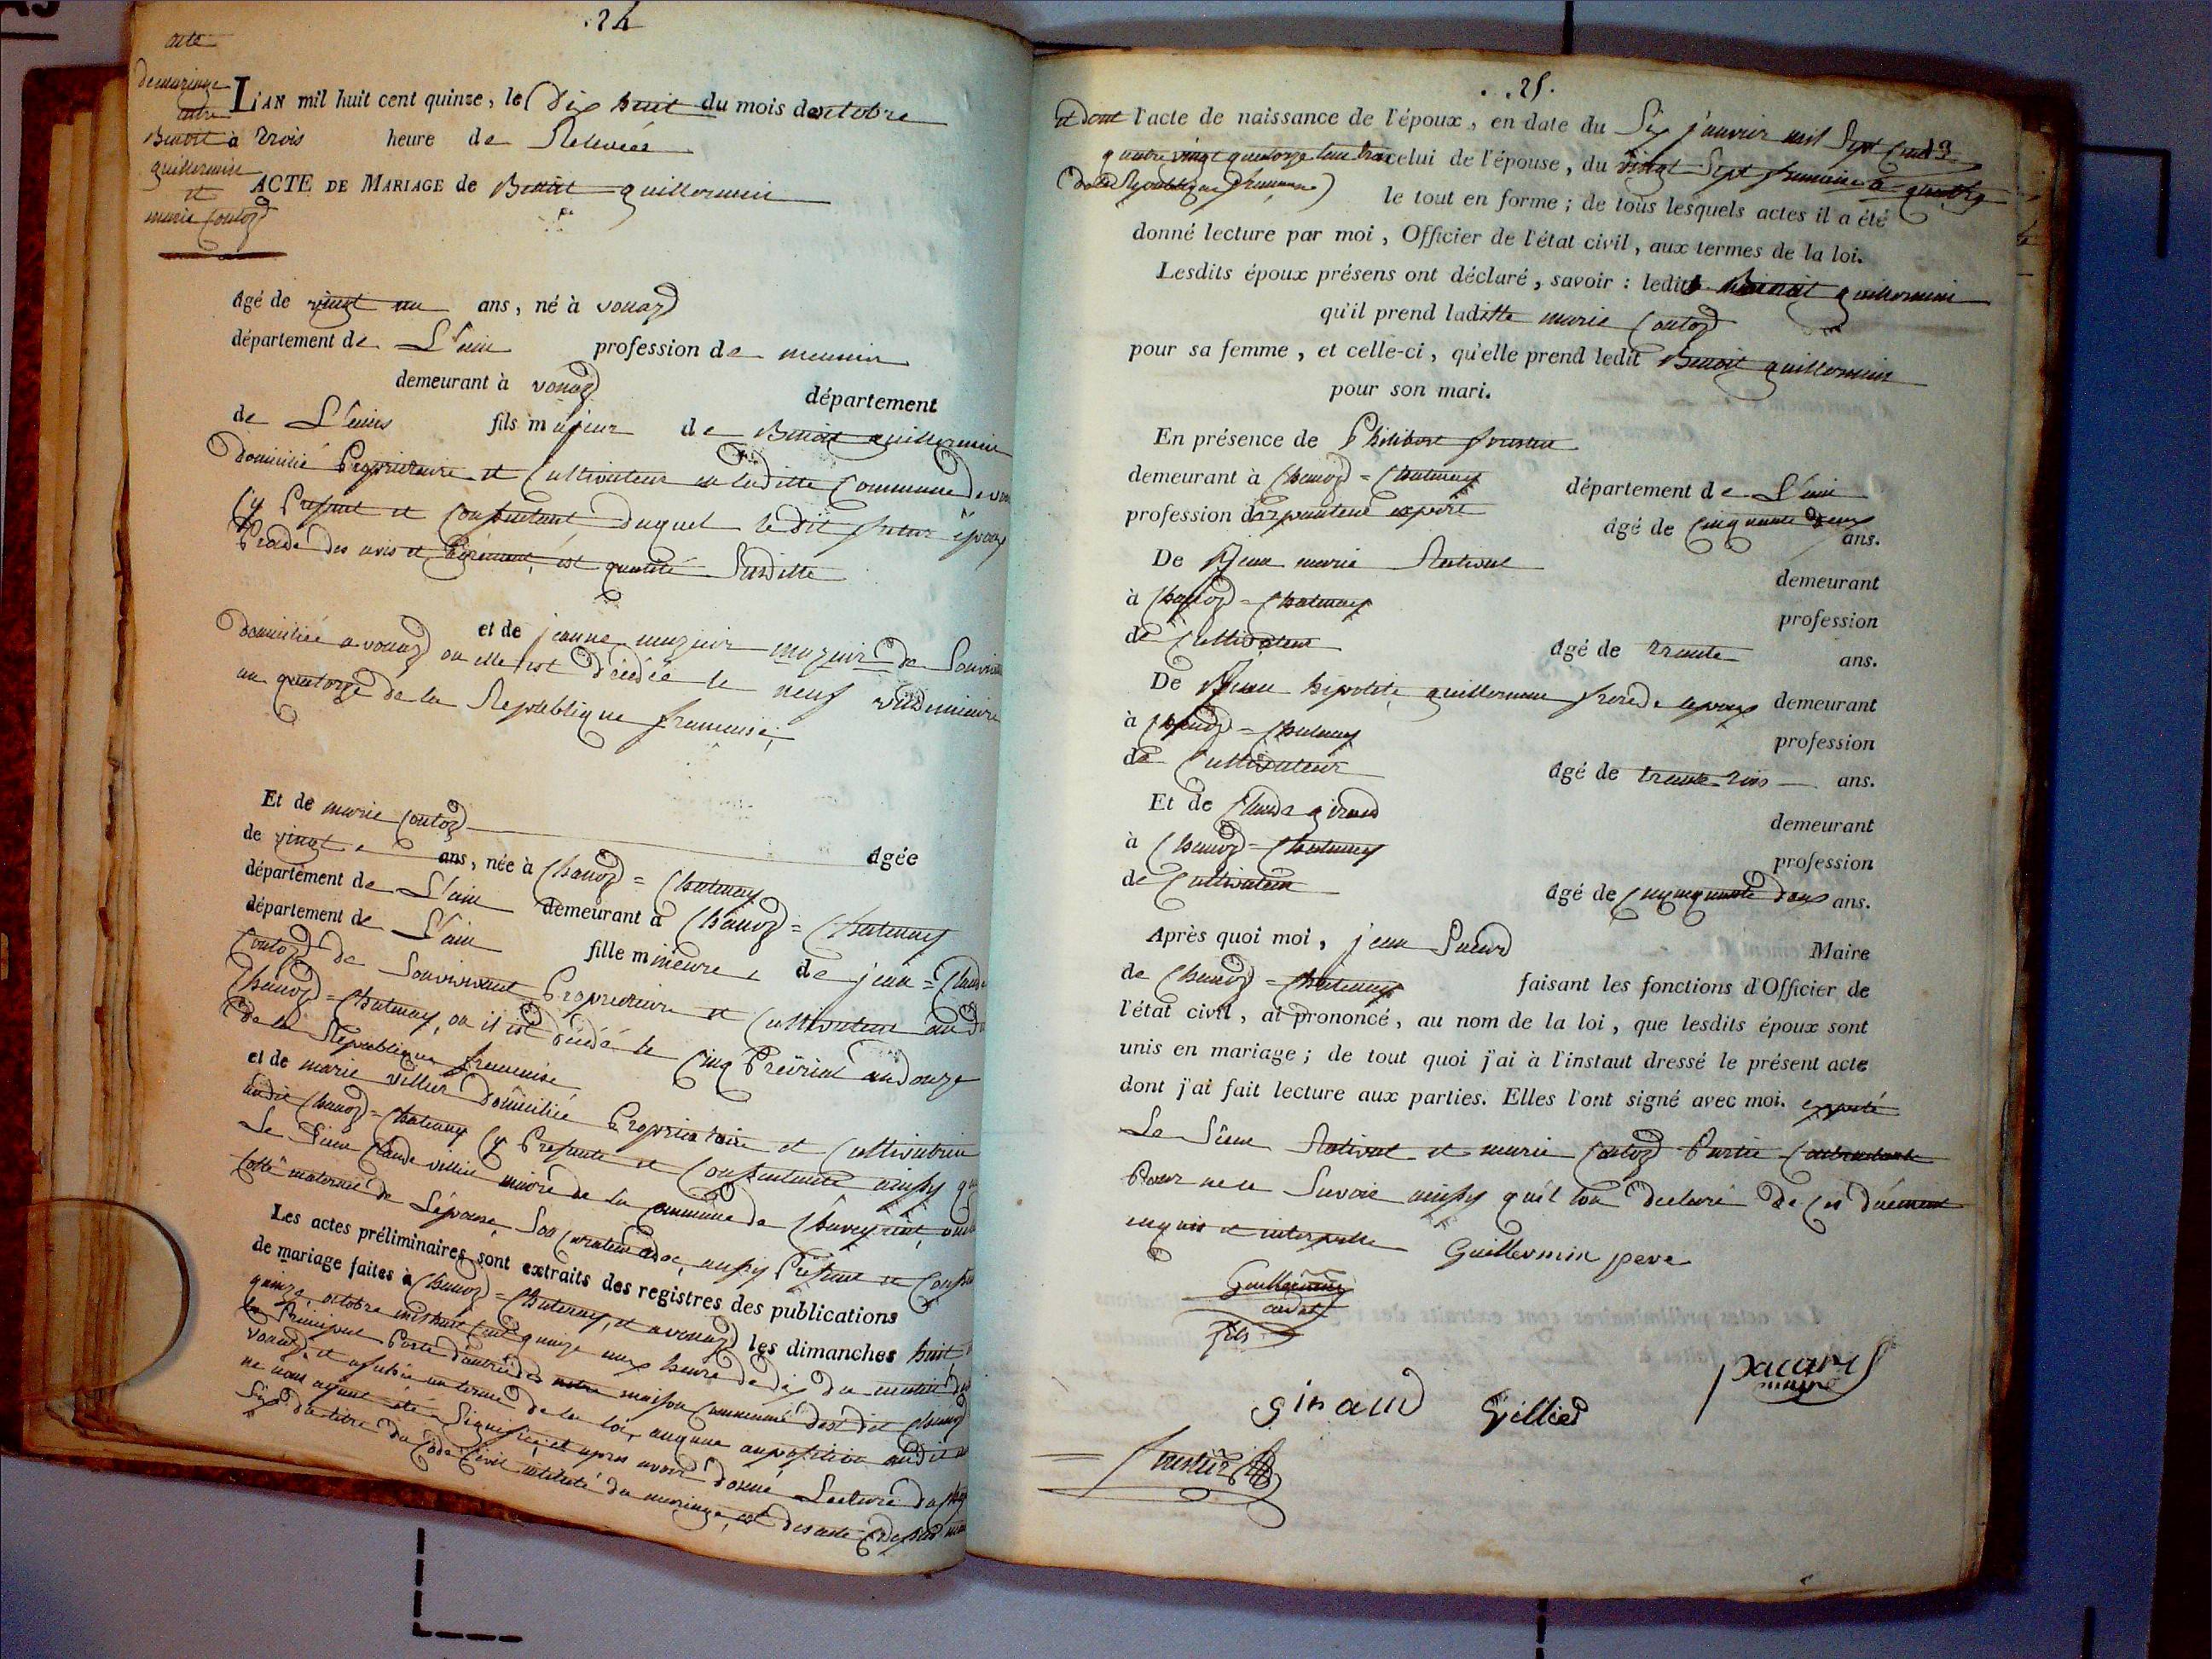 24
acte
de mariage
entre
Benoit
guillermin
et
marie Contoz
L'AN mil huit cent quinze, le Dix huit du mois doctobre
à Trois heure de Relevées
ACTE DE MARIAGE de Benoit guillermin
âgé de vingt un ans, né à vonaz
département de L'ain profession de meunier
demeurant à vonaz département
de L'ain fils majeur de Benoit guillermin
Domicilié Proprietaire et Cultivateur en laditte Commune de
Cy Present et Consentant duquel ledit futur époux
des avis et est quantité Susditte
et de jeanne mazuir mazuir de Son vivant
Domiciliée a vonaz ou elle est décédée le neuf vendemiaire
an quatorze de la Republique francaise,
Et de marie Contoz âgée
de vingt ans, née à Chanoz = Chatenay
département de L'ain demeurant à Chanoz = Chatenay
département de L'ain fille mineure de jean = Claude
Contoz de Son vivant Proprietaire et Cultivateur audit
Chanoz = Chatenay, ou il est décédé le Cinq Preirial an Douze
de la Republique francaise
et de marie villier Domiciliée Proprietaire et Cultivatrice
audit Chanoz = Chatenay Cy Presente et Consentante ainsy que
Le Sieur Claude villier maire de la Commune de Chaveyriat, oncle
Cotté maternel de L'épouse, Son Curateur adoc, aussy Present et Consentant
Les actes préliminaires sont extraits des registres des publications
de mariage faites à Chanoz = Chatenay, et a vonaz les dimanches huit
quinze octobre mil huit Cent quinze aux heure de dix du matin
la Principal Porte d'entrée de notre maison Commune dest dit Chanoz
vonaz, et afichée au terme de la loi, aucune oppofition audit
ne nous ayant été Signifiée, et apres avoir donné Lecture du
Six du titre du Code Civil intitulé du mariage, et des acte
25.
et dont l'acte de naissance de l'époux, en date du Six janvier mil Sept Cent
quatre vingt quatorze celui de l'épouse, du vingt Sept frimaire a quatre
(de la Republique francaise) le tout en forme; de tous lesquels actes il a été
donné lecture par moi, Officier de l'état civil, aux termes de la loi.
Lesdits époux présens ont déclaré, savoir: ledit Benoit guillermin
qu'il prend laditte marie Contoz
pour sa femme, et celle-ci, qu'elle prend ledit Benoit guillermin
pour son mari.
En présence de Philibert
demeurant à Chanoz = Chatenay département de L'ain
profession d'arpenteur expert âgé de Cinquante deux ans.
De Jean marie Rativat demeurant
à Chanoz = Chatenay profession
de Cultivateur âgé de Trente ans.
De Jean hipolite guillermin frere de lepoux demeurant
à Chanoz = Chatenay profession
de Cultivateur âgé de trente Trois ans.
Et de Claude giraud demeurant
à Chanoz = Chatenay profession
de Cultivateur âgé de Cinquante Deux ans.
Après quoi moi, jean Maire
de Chanoz = Chatenay faisant les fonctions d'Officier de
l'état civil, ai prononcé, au nom de la loi, que lesdits époux sont
unis en mariage; de tout quoi j'ai à l'instaut dressé le présent acte
dont j'ai fait lecture aux parties. Elles l'ont signé avec moi. excepté
Le Sieur Rativat et marie Contoz Partie Contractante
Pour ne le Savoir ainsy quil lon declaré de ces duëment
enquis et interpelle
Guillermin pere
Guillermin
cadet
fils
pacard
maire
giraud villier